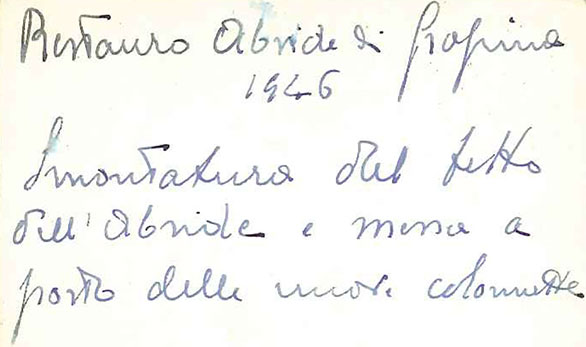 Restauro Abside di Gropina
1946
Smontatura del tetto
dell'Abside e messa a
posto delle nuove colonnette